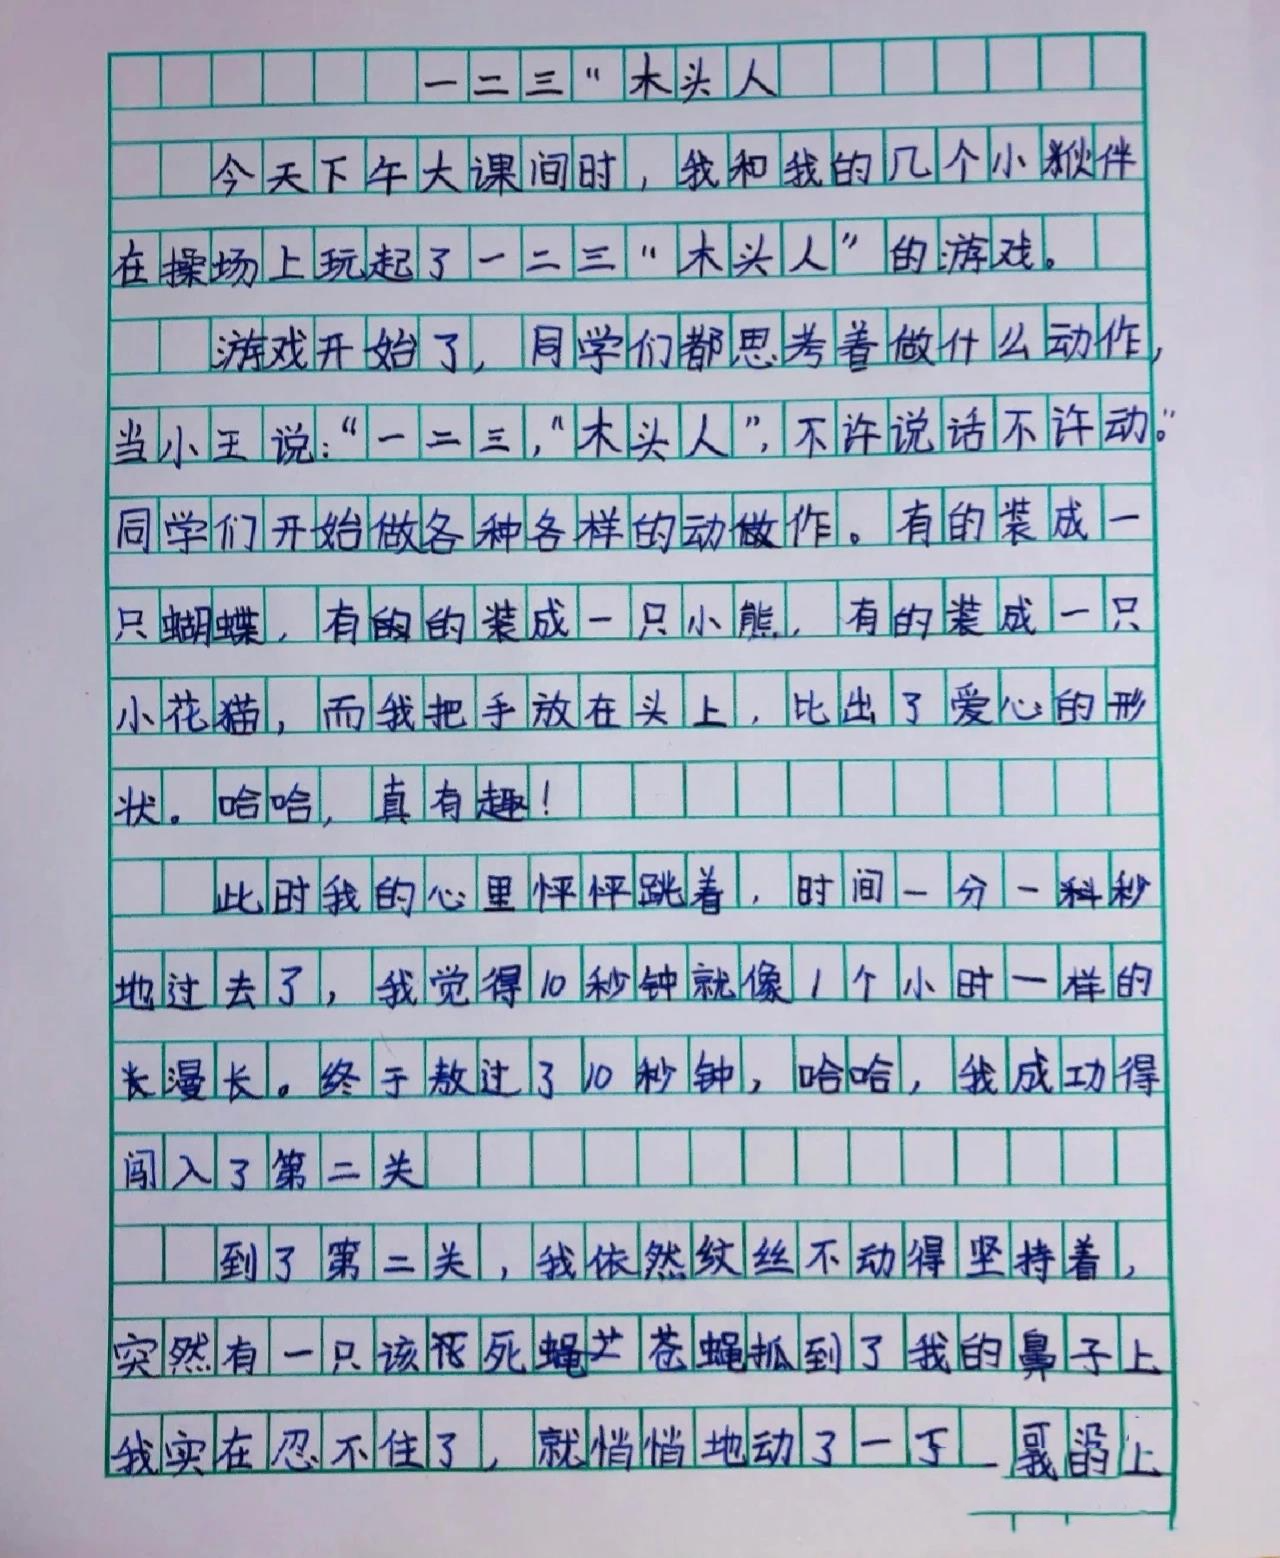 一二三“木头人
今天下午大课间时，我和我的几个小伙伴
在操场上玩起了一二三“木头人”的游戏。
游戏开始了，同学们都思考着做什么动作，
当小王说：“一二三，“木头人”，不许说话不许动。”
同学们开始做各种各样的动做作。有的装成一
只蝴蝶，有的的装成一只小熊，有的装成一只
小花猫，而我把手放在头上，比出了爱心的形
状。哈哈，真有趣！
此时我的心里怦怦跳着，时间一分一科秒
地过去了，我觉得10秒钟就像1个小时一样的
长漫长。终于敖过了10秒钟，哈哈，我成功得
闯入了第二关
到了第二关，我依然纹丝不动得坚持着，
突然有一只该死蝇苍蝇抓到了我的鼻子上
我实在忍不住了，就悄悄地动了一下 上